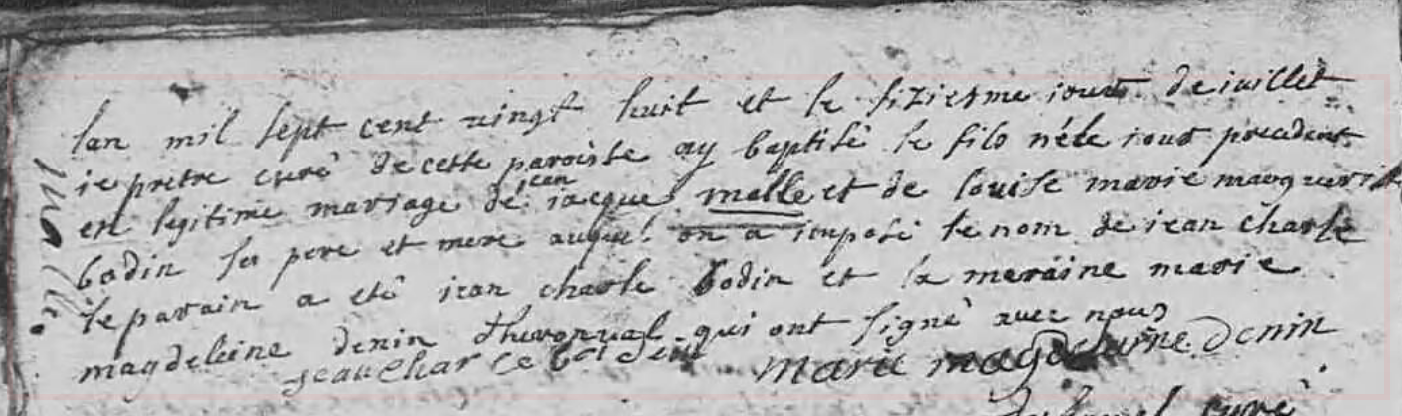 lan mil sept cent vingt huit et le siziesme jour de juillet
je pretre curé de cette paroisse ay baptisé le fils né le jour precedent
en legitime mariage de jean jacque malle et de louise marie marguerite
bodin ses pere et mere auquel on a imposé le nom de jean charle
le parain a eté jean charle bodin et la meraine marie
magdeleine denin qui ont signé avec nous
jean charle bodin marie magdeleine denin
curé